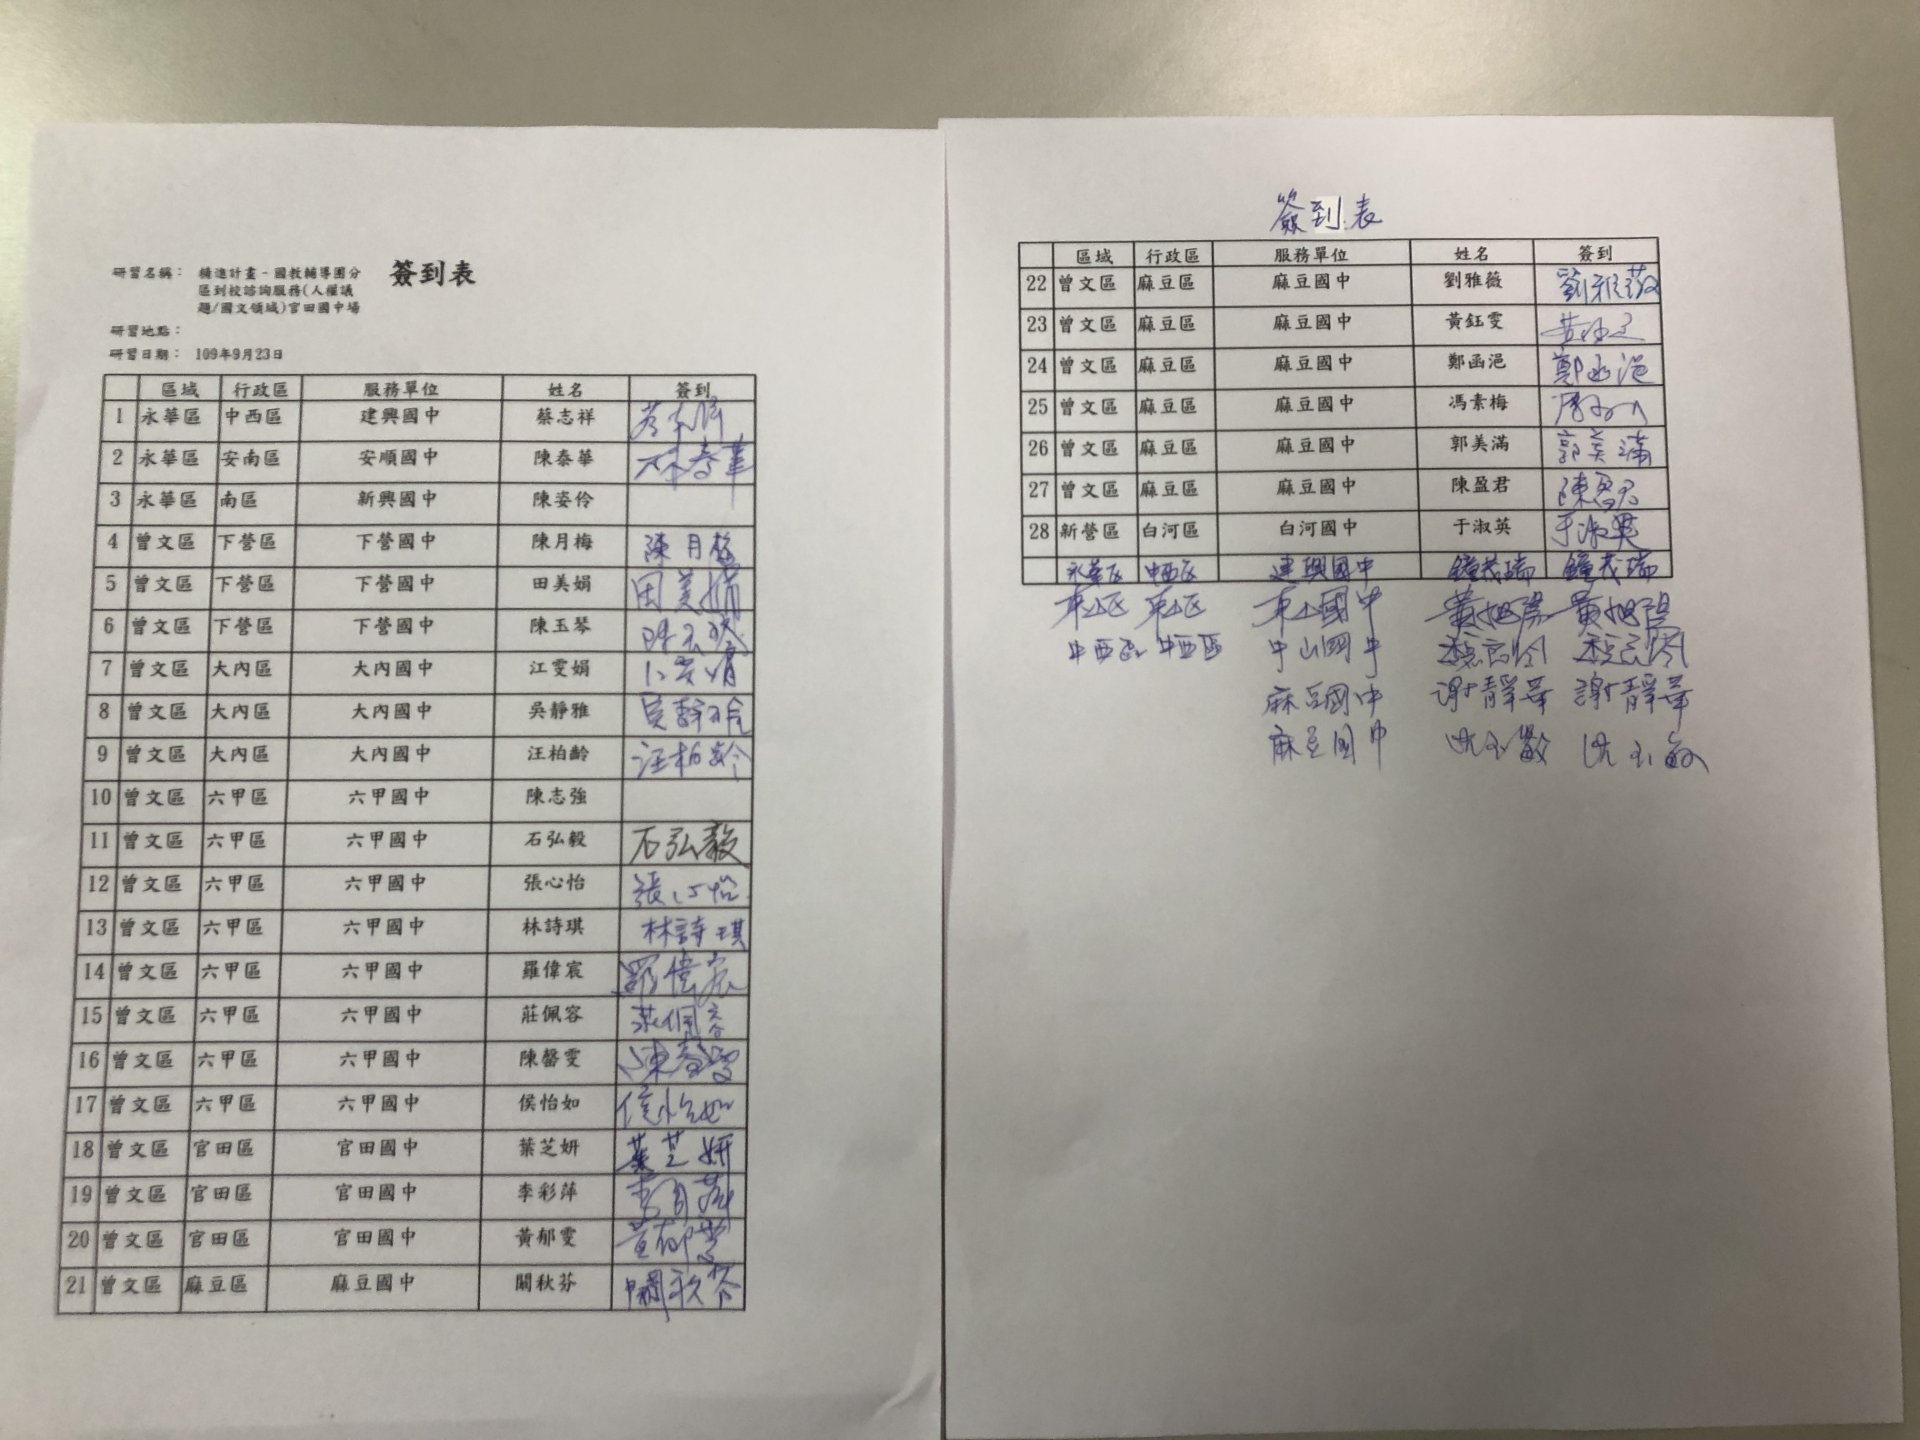 研習名稱： 精進計畫－國教輔導團分 簽到表
區到校諮詢服務(人權議
題/國文領域)官田國中場
研習地點：
研習日期： 109年9月23日
區域 行政區 服務單位 姓名 簽到
1 永華區 中西區 建興國中 蔡志祥
2 永華區 安南區 安順國中 陳泰華
3 永華區 南區 新興國中 陳姿伶
4 曾文區 下營區 下營國中 陳月梅 陳月梅
5 曾文區 下營區 下營國中 田美娟 田美娟
6 曾文區 下營區 下營國中 陳玉琴 陳玉琴
7 曾文區 大內區 大內國中 江雯娟 江雯娟
8 曾文區 大內區 大內國中 吳靜雅
9 曾文區 大內區 大內國中 汪柏齡 汪柏齡
10 曾文區 六甲區 六甲國中 陳志強
11 曾文區 六甲區 六甲國中 石弘毅 石弘毅
12 曾文區 六甲區 六甲國中 張心怡 張心怡
13 曾文區 六甲區 六甲國中 林詩琪 林詩琪
14 曾文區 六甲區 六甲國中 羅偉宸 羅偉宸
15 曾文區 六甲區 六甲國中 莊佩容 莊佩容
16 曾文區 六甲區 六甲國中 陳馨雯 陳馨雯
17 曾文區 六甲區 六甲國中 侯怡如 侯怡如
18 曾文區 官田區 官田國中 葉芝妍 葉芝妍
19 曾文區 官田區 官田國中 李彩萍 李彩萍
20 曾文區 官田區 官田國中 黃郁雯 黃郁雯
21 曾文區 麻豆區 麻豆國中 闕秋芬 闕秋芬
簽到表
區域 行政區 服務單位 姓名 簽到
22 曾文區 麻豆區 麻豆國中 劉雅薇 劉雅薇
23 曾文區 麻豆區 麻豆國中 黃鈺雯 黃鈺雯
24 曾文區 麻豆區 麻豆國中 鄭函浥 鄭函浥
25 曾文區 麻豆區 麻豆國中 馮素梅
26 曾文區 麻豆區 麻豆國中 郭美滿 郭美滿
27 曾文區 麻豆區 麻豆國中 陳盈君 陳盈君
28 新營區 白河區 白河國中 于淑英 于淑英
永華區 中西區 建興國中 鐘茂瑞 鐘茂瑞
東山區 東山區 東山國中
中西區 中西區 中山國中
麻豆國中 謝靜華 謝靜華
麻豆國中 沈玉敏 沈玉敏